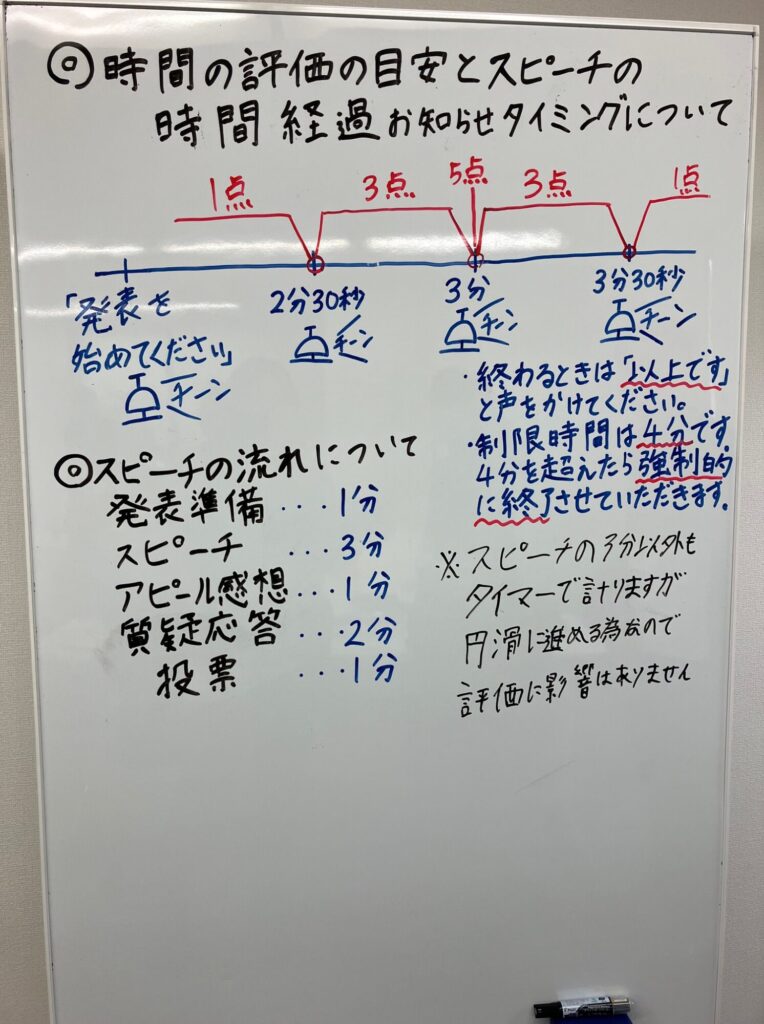 ◎時間の評価の目安とスピーチの
時間経過お知らせタイミングについて
1点 3点 5点 3点 1点
「発表を
始めてください」
チーン
2分30秒
チーン
3分
チーン
3分30秒
チーン
・終わるときは「以上です」
と声をかけてください。
・制限時間は4分です
4分を超えたら強制的
に終了させていただきます。
◎スピーチの流れについて
発表準備・・・1分
スピーチ・・・3分
アピール感想・・・1分
質疑応答・・・2分
投票・・・1分
※スピーチの3分以外も
タイマーで計りますが
円滑に進める為なので
評価に影響はありません